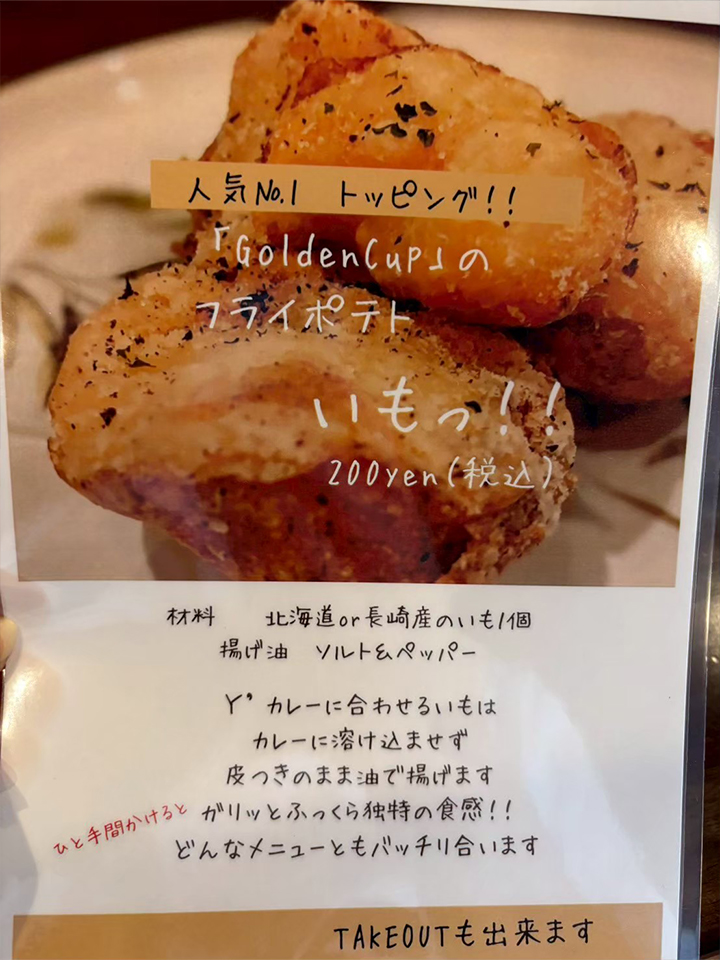 人気No.1 トッピング!!
「GoldenCup」の
フライポテト
いもっ!!
200yen(税込)
材料 北海道or長崎産のいも1個
揚げ油 ソルト&ペッパー
Y'カレーに合わせるいもは
カレーに溶け込ませず
皮つきのまま油で揚げます
ひと手間かけると
ガリッとふっくら独特の食感!!
どんなメニューともバッチリ合います
TAKEOUTも出来ます